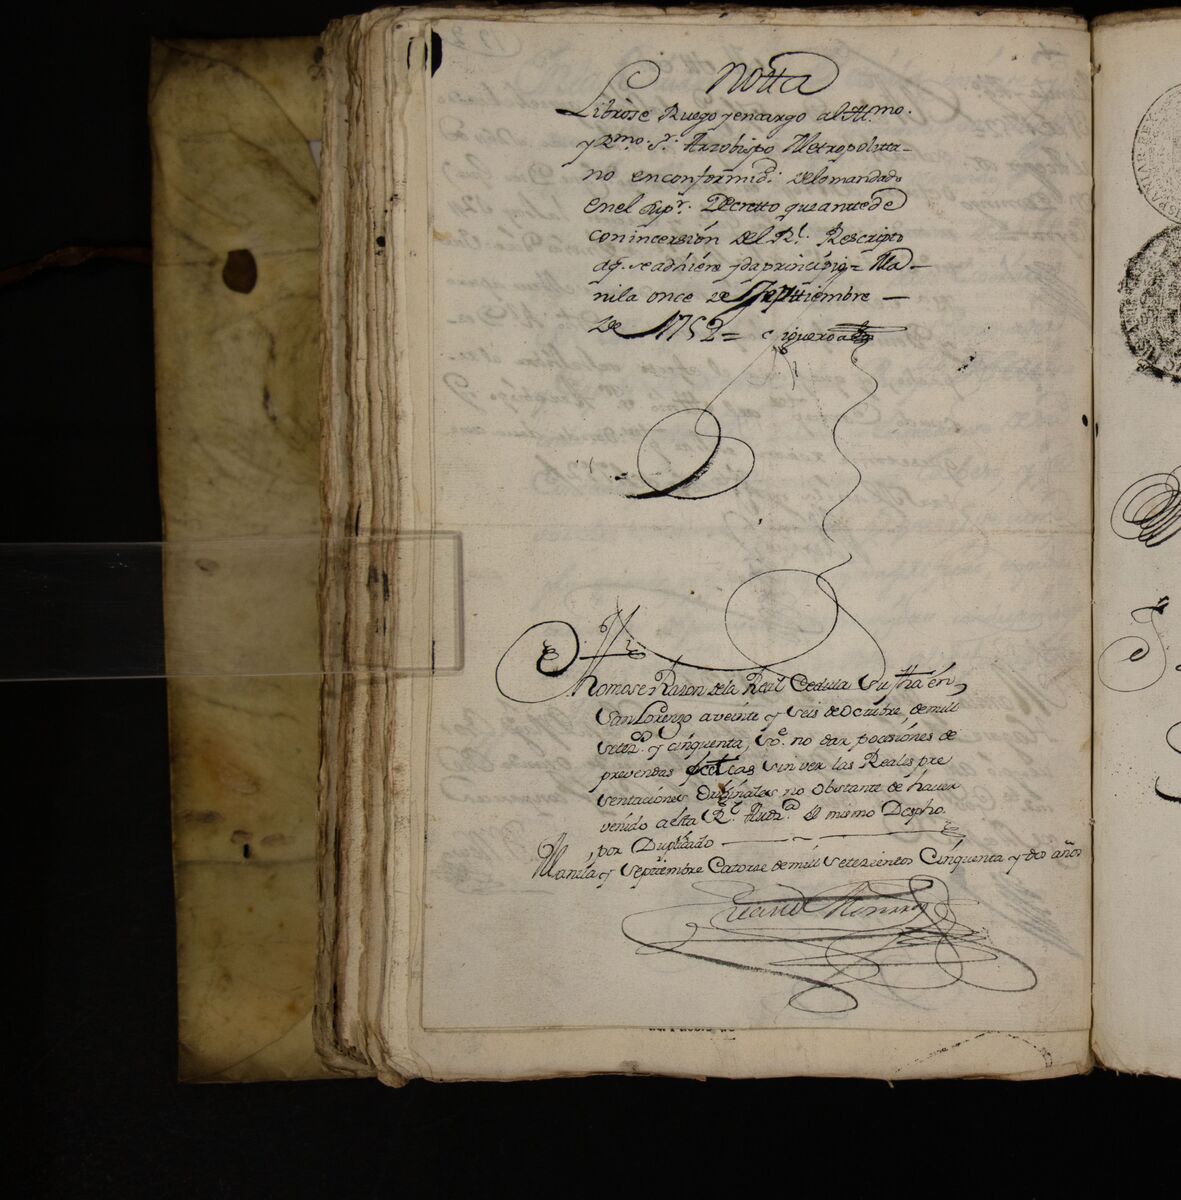 Notta
Librose Ruego y encargo al Ill.mo.
y R.mo. S.r. Arzobispo Metropolita-
no en conformid.d. de lo mandado
en el sup.r. Decretto que antecede
con incersión del R.l. Rescripto
a q. se adhiere y da principio = Ma-
nila once de Septtiembre —
de 1752 =
Thomose Razon de la Real Cedula su ftha en
San Lorenzo a veinte y seis de Octubre, de mill
setez.s y cinquenta, s.e no dar pocesiónes de
prevendas sin ver las Reales pre
sentaciónes Originales no obstante de haver
venido a esta R.l Aud.a el mismo Despho.
por Duplicado
Manila y Septiembre Catorze de mill setezientos Cinquenta y dos años